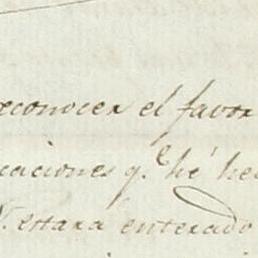 reconocer el favor
caciones q.e hé he
V. estara enterado